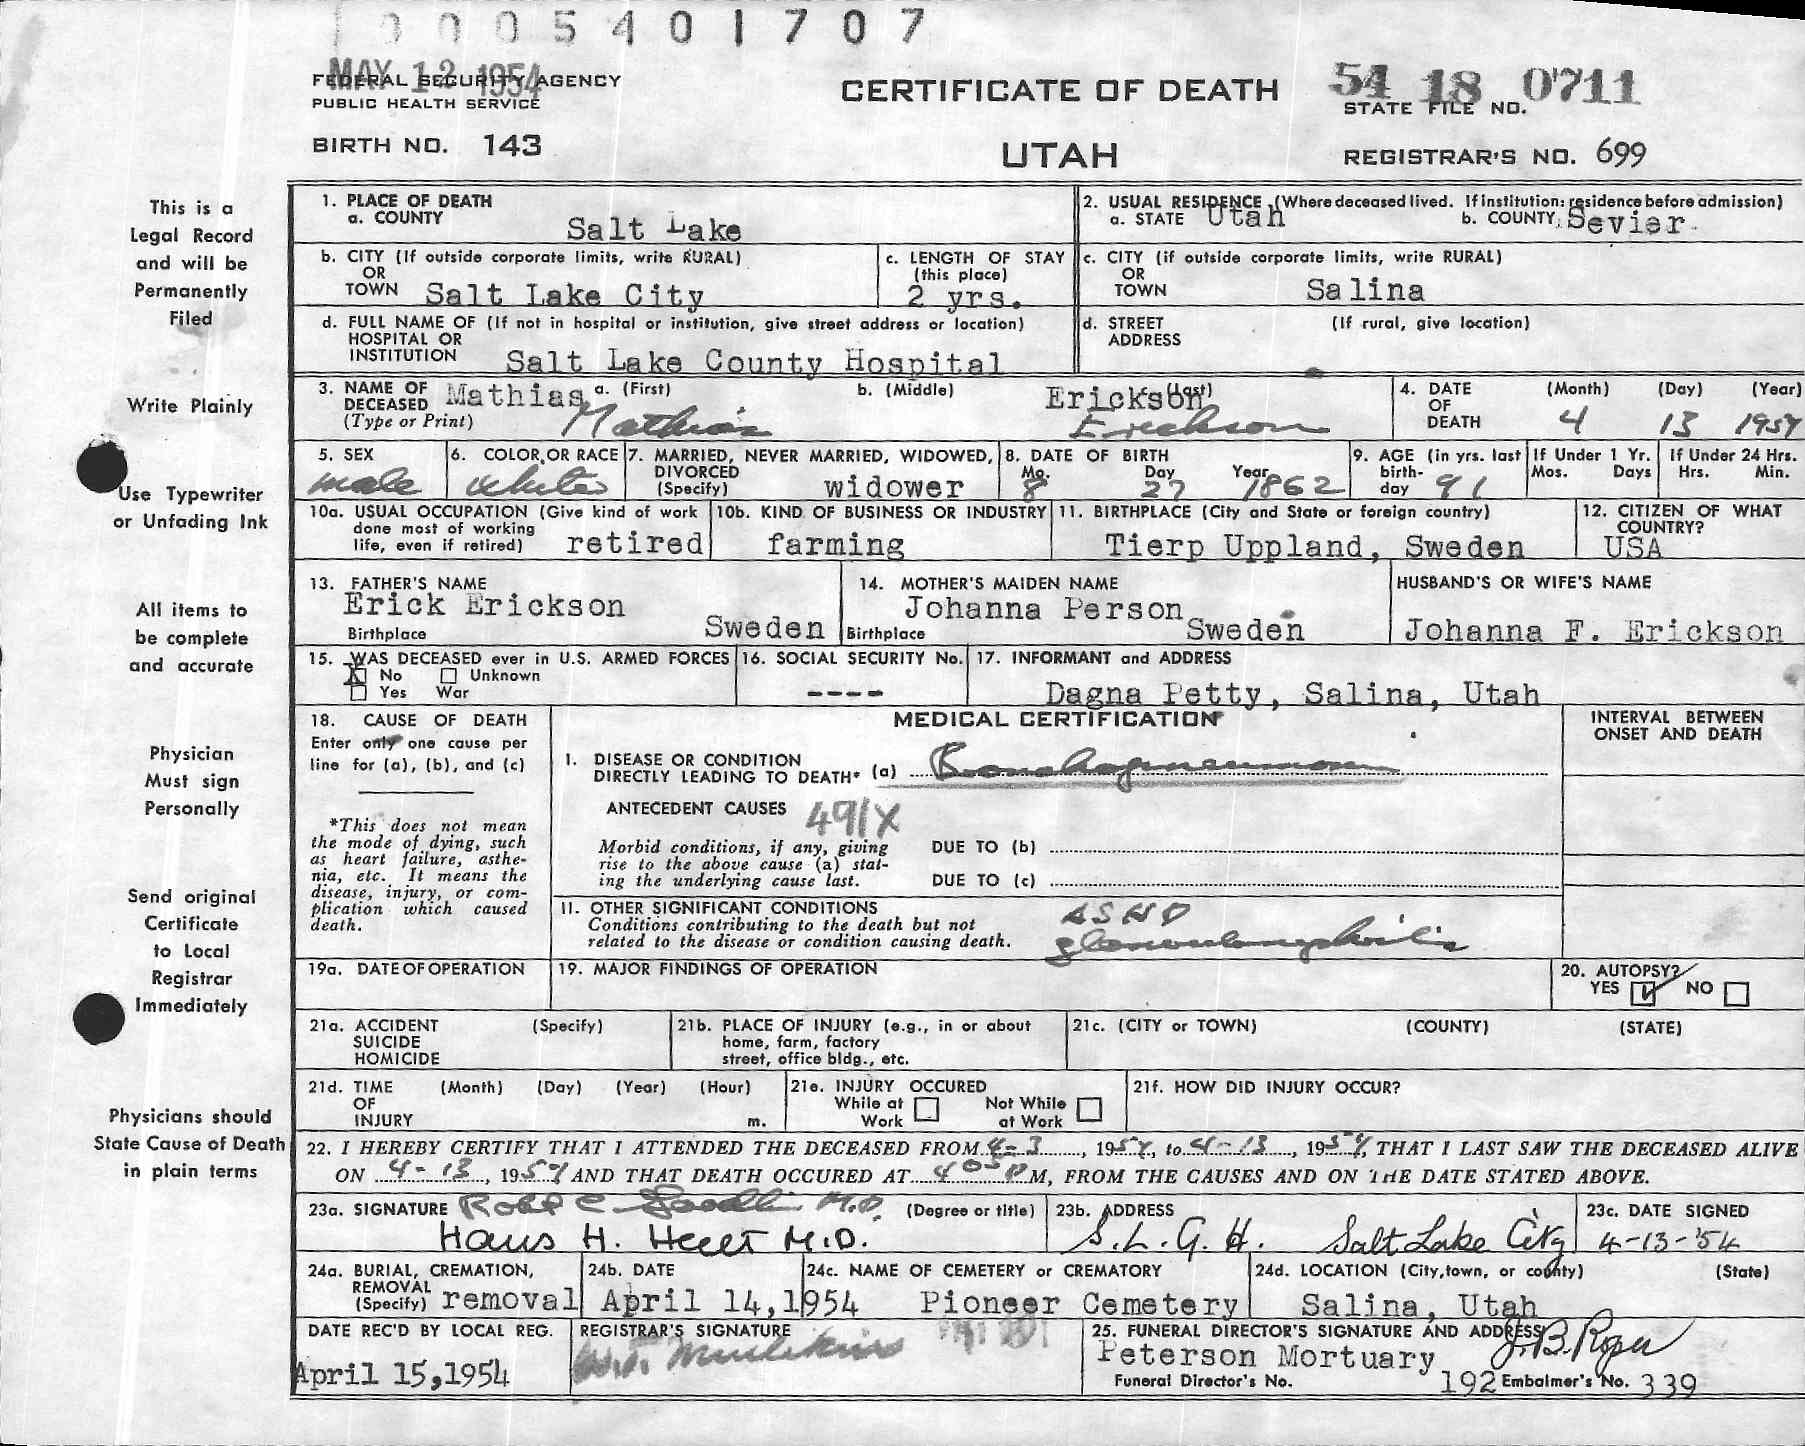 0005401707
MAY 12 1954
FEDERAL SECURITY AGENCY
PUBLIC HEALTH SERVICE
BIRTH NO. 143
CERTIFICATE OF DEATH
UTAH
54 18 0711
STATE FILE NO.
REGISTRAR'S NO. 699
This is a
Legal Record
and will be
Permanently
Filed
Write Plainly
Use Typewriter
or Unfading Ink
All items to
be complete
and accurate
Physician
Must sign
Personally
Send original
Certificate
to Local
Registrar
Immediately
Physicians should
State Cause of Death
in plain terms
1. PLACE OF DEATH
a. COUNTY Salt Lake
2. USUAL RESIDENCE (Where deceased lived. If institution: residence before admission)
a. STATE Utah b. COUNTY Sevier
b. CITY (If outside corporate limits, write RURAL)
OR
TOWN Salt Lake City
c. LENGTH OF STAY
(this place)
2 yrs.
c. CITY (if outside corporate limits, write RURAL)
OR
TOWN Salina
d. FULL NAME OF (If not in hospital or institution, give street address or location)
HOSPITAL OR
INSTITUTION Salt Lake County Hospital
d. STREET (If rural, give location)
ADDRESS
3. NAME OF a. (First) b. (Middle) (Last)
DECEASED Mathias Erickson
(Type or Print) Mathias Erickson
4. DATE (Month) (Day) (Year)
OF
DEATH 4 13 1954
5. SEX
male
6. COLOR OR RACE
white
7. MARRIED, NEVER MARRIED, WIDOWED,
DIVORCED
(Specify) widower
8. DATE OF BIRTH
Mo. Day Year
8 27 1862
9. AGE (in yrs. last
birth-
day 91
If Under 1 Yr.
Mos. Days
If Under 24 Hrs.
Hrs. Min.
10a. USUAL OCCUPATION (Give kind of work
done most of working
life, even if retired) retired
10b. KIND OF BUSINESS OR INDUSTRY
farming
11. BIRTHPLACE (City and State or foreign country)
Tierp Uppland, Sweden
12. CITIZEN OF WHAT
COUNTRY?
USA
13. FATHER'S NAME
Erick Erickson
Birthplace Sweden
14. MOTHER'S MAIDEN NAME
Johanna Person
Birthplace Sweden
HUSBAND'S OR WIFE'S NAME
Johanna F. Erickson
15. WAS DECEASED ever in U.S. ARMED FORCES
X No Unknown
Yes War
16. SOCIAL SECURITY No.
----
17. INFORMANT and ADDRESS
Dagna Petty, Salina, Utah
18. CAUSE OF DEATH
Enter only one cause per
line for (a), (b), and (c)
*This does not mean
the mode of dying, such
as heart failure, asthe-
nia, etc. It means the
disease, injury, or com-
plication which caused
death.
MEDICAL CERTIFICATION
INTERVAL BETWEEN
ONSET AND DEATH
I. DISEASE OR CONDITION
DIRECTLY LEADING TO DEATH* (a) Bronchopneumonia
ANTECEDENT CAUSES 491X
Morbid conditions, if any, giving
rise to the above cause (a) stat-
ing the underlying cause last.
DUE TO (b)
DUE TO (c)
II. OTHER SIGNIFICANT CONDITIONS
Conditions contributing to the death but not
related to the disease or condition causing death.
ASHD
glomerulonephritis
19a. DATE OF OPERATION
19. MAJOR FINDINGS OF OPERATION
20. AUTOPSY?
YES NO
21a. ACCIDENT (Specify)
SUICIDE
HOMICIDE
21b. PLACE OF INJURY (e.g., in or about
home, farm, factory
street, office bldg., etc.
21c. (CITY or TOWN) (COUNTY) (STATE)
21d. TIME (Month) (Day) (Year) (Hour)
OF
INJURY m.
21e. INJURY OCCURED
While at Work Not While at Work
21f. HOW DID INJURY OCCUR?
22. I HEREBY CERTIFY THAT I ATTENDED THE DECEASED FROM 4-3, 1954, to 4-13, 1954, THAT I LAST SAW THE DECEASED ALIVE
ON 4-13, 1954 AND THAT DEATH OCCURED AT 4 05 P M, FROM THE CAUSES AND ON THE DATE STATED ABOVE.
23a. SIGNATURE Robt C. M.D. (Degree or title)
Hans H. Hecht M.D.
23b. ADDRESS
S.L.G.H. Salt Lake City
23c. DATE SIGNED
4-13-'54
24a. BURIAL, CREMATION,
REMOVAL
(Specify) removal
24b. DATE
April 14, 1954
24c. NAME OF CEMETERY or CREMATORY
Pioneer Cemetery
24d. LOCATION (City, town, or county) (State)
Salina, Utah
DATE REC'D BY LOCAL REG.
April 15, 1954
REGISTRAR'S SIGNATURE
25. FUNERAL DIRECTOR'S SIGNATURE AND ADDRESS
J.B. Roper
Peterson Mortuary
Funeral Director's No. 192 Embalmer's No. 339